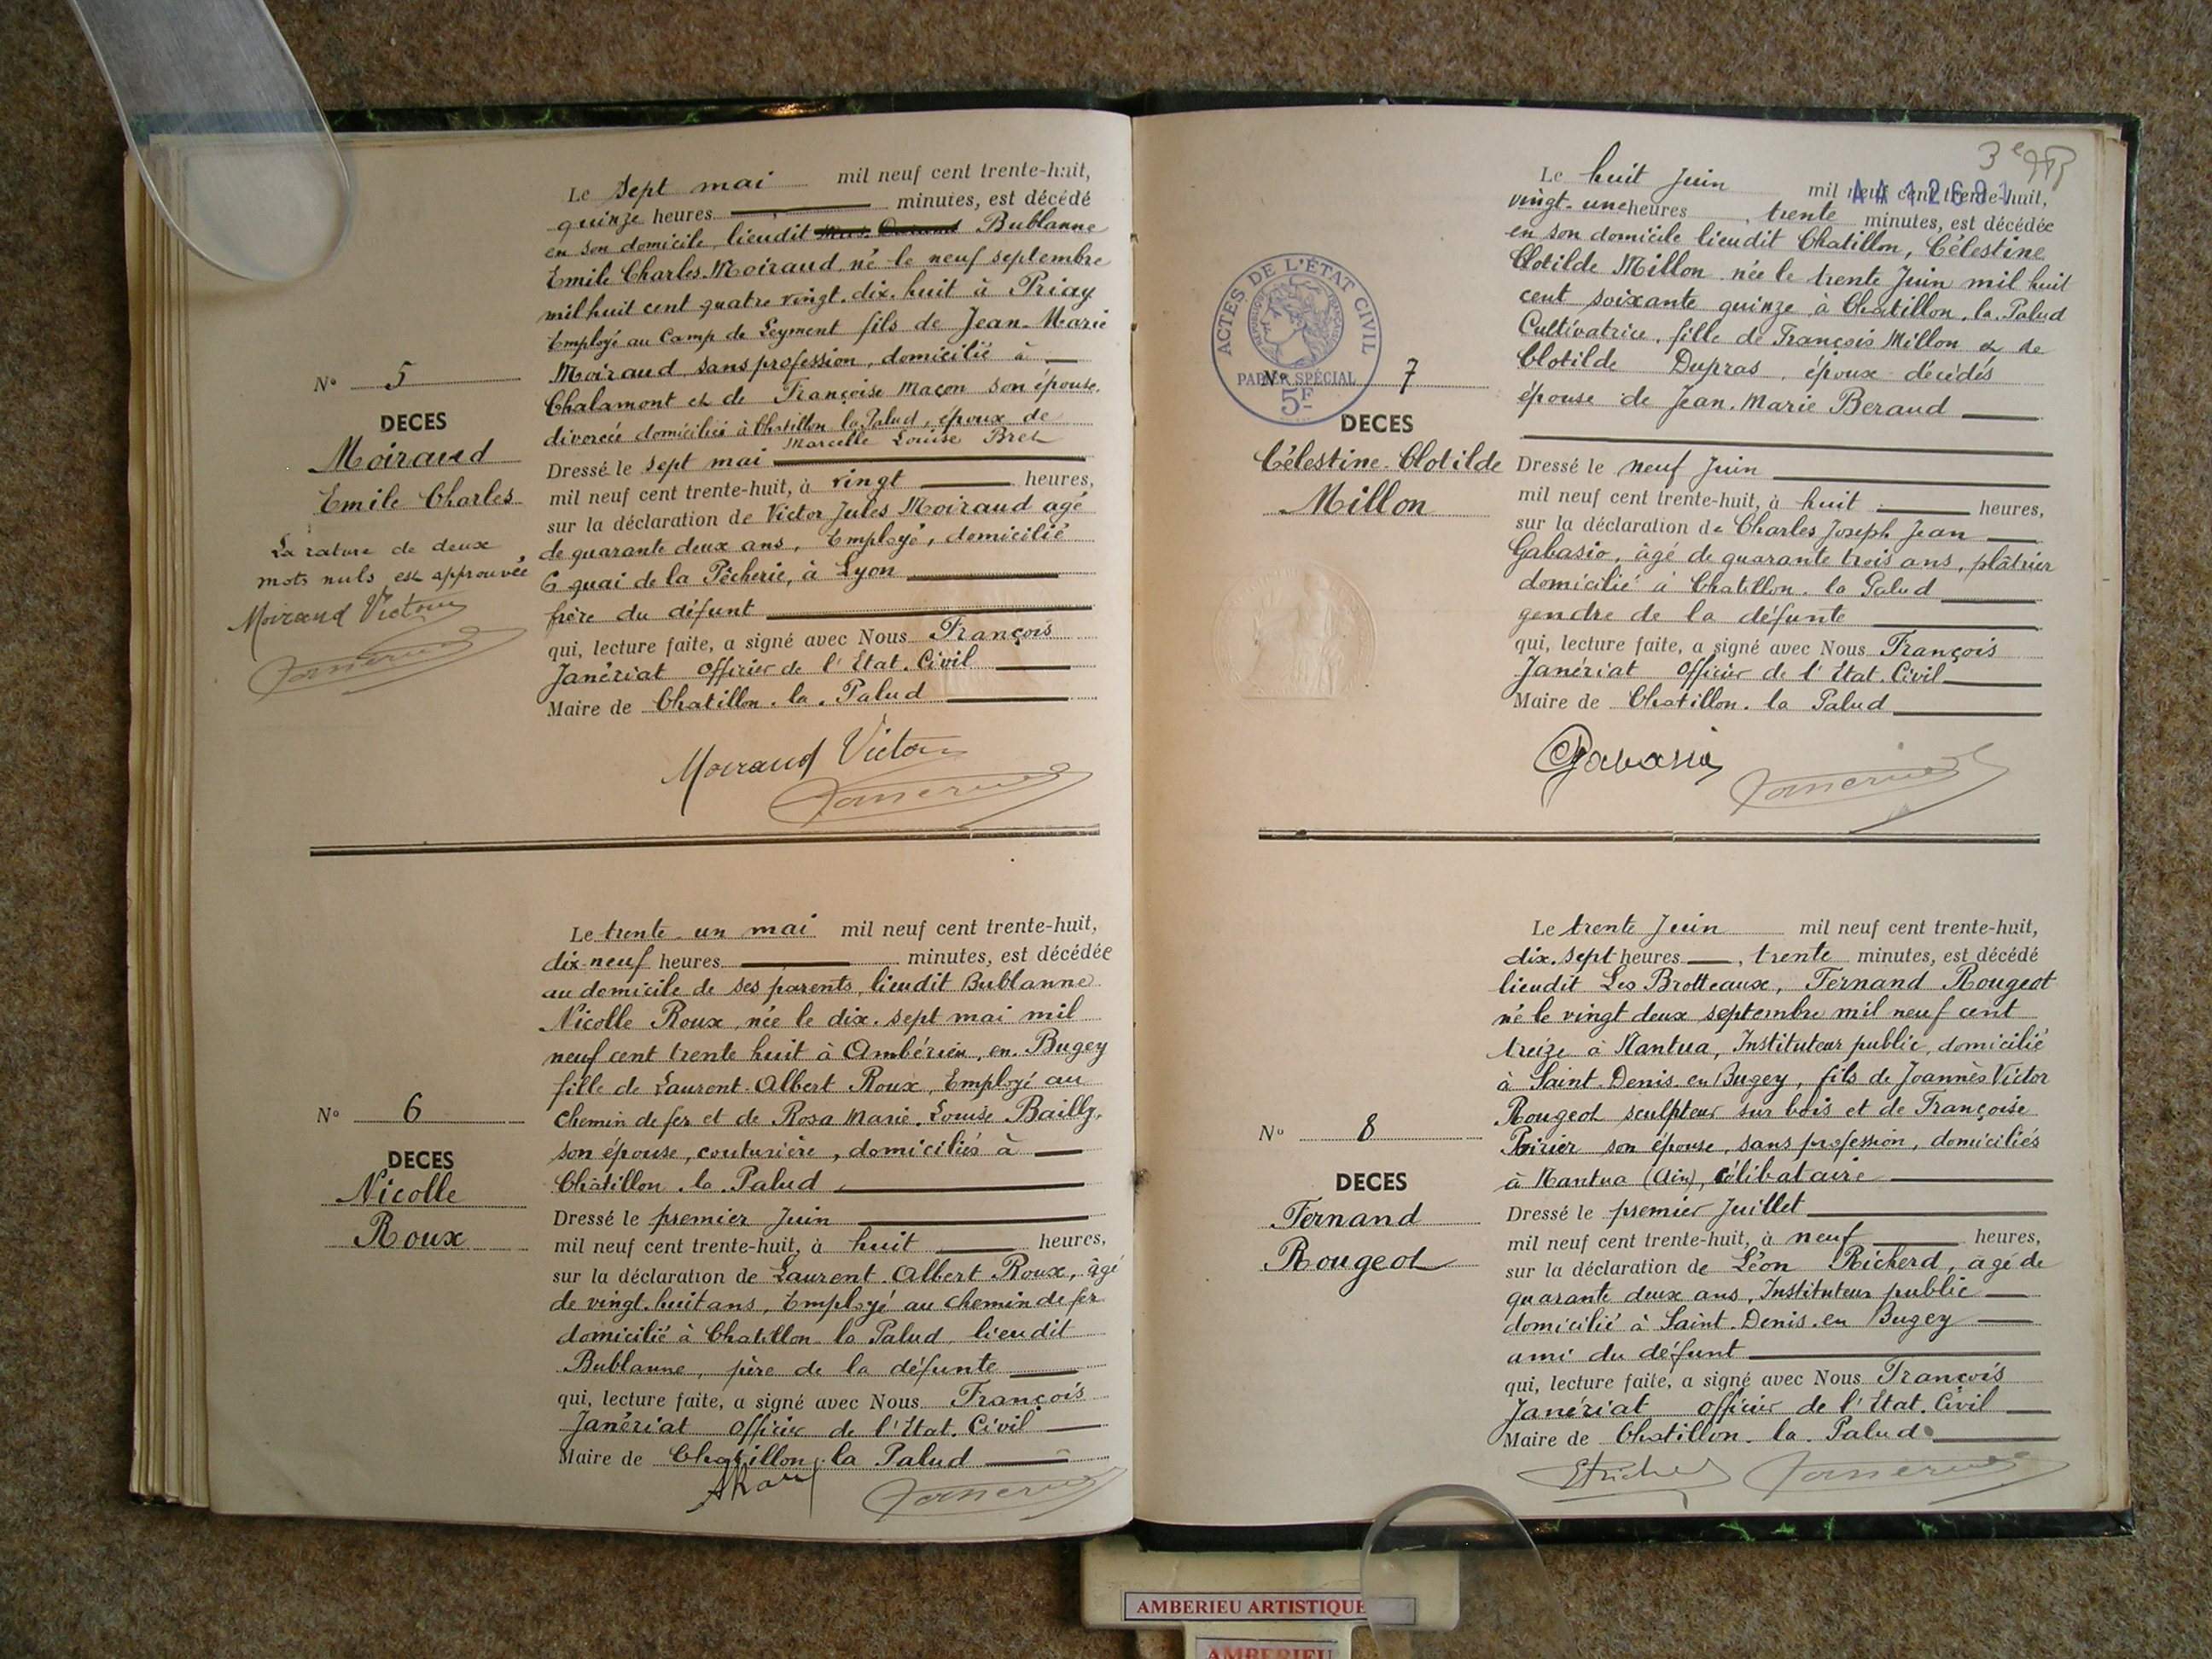 Le sept mai mil neuf cent trente-huit,
quinze heures minutes, est décédé
en son domicile, lieudit Bublanne
Emile Charles Moiraud né le neuf septembre
mil huit cent quatre vingt. dix. huit à Priay
Employé au Camp de Leyment fils de Jean-Marie
Moiraud, sans profession, domicilié à
Chalamont et de Françoise Maçon son épouse,
divorcée domiciliée à Chatillon la Palud, époux de
Marcelle Louise Bret
N° 5
DECES
Moiraud
Emile Charles
La rature de deux
mots nuls est approuvée
Moiraud Victor
Dressé le sept mai
mil neuf cent trente-huit, à vingt heures,
sur la déclaration de Victor Jules Moiraud agé
de quarante deux ans, Employé, domicilié
6 quai de la Pêcherie, à Lyon
frère du défunt
qui, lecture faite, a signé avec Nous François
Janériat Officier de l'Etat. Civil
Maire de Chatillon. la. Palud
Moiraud Victor
Le trente. un mai mil neuf cent trente-huit,
dix-neuf heures minutes, est décédée
au domicile de ses parents, lieudit Bublanne
Nicolle Roux, née le dix. sept mai mil
neuf cent trente huit à Ambérieu. en. Bugey
fille de Laurent-Albert Roux, Employé au
chemin de fer et de Rosa Marie. Louise Bailly,
son épouse, couturière, domiciliés à
Châtillon. la. Palud
N° 6
DECES
Nicolle
Roux
Dressé le premier Juin
mil neuf cent trente-huit, à huit heures,
sur la déclaration de Laurent. Albert Roux, âgé
de vingt. huit ans, Employé au chemin de fer
domicilié à Chatillon la Palud, lieudit
Bublanne, père de la défunte
qui, lecture faite, a signé avec Nous François
Janériat Officier de l'Etat. Civil
Maire de Chatillon. la Palud
3e
AA12691
Le huit Juin mil neuf cent trente-huit,
vingt-une heures, trente minutes, est décédée
en son domicile lieudit Chatillon, Célestine
Clotilde Millon née le trente Juin mil huit
cent soixante quinze à Chatillon. la. Palud
Cultivatrice, fille de François Millon et de
Clotilde Dupras, époux décédés
épouse de Jean. Marie Beraud
ACTES DE L'ÉTAT CIVIL
PAPIER SPÉCIAL
5F
N° 7
DECES
Célestine-Clotilde
Millon
Dressé le neuf Juin
mil neuf cent trente-huit, à huit heures,
sur la déclaration de Charles Joseph Jean
Gabasio, âgé de quarante trois ans, plâtrier
domicilié à Chatillon. la Palud
gendre de la défunte
qui, lecture faite, a signé avec Nous François
Janériat Officier de l'Etat. Civil
Maire de Chatillon. la Palud
Gabasio
Le trente Juin mil neuf cent trente-huit,
dix. sept heures, trente minutes, est décédé
lieudit Les Brotteaux, Fernand Rougeot
né le vingt deux septembre mil neuf cent
treize à Nantua, Instituteur public, domicilié
à Saint-Denis-en Bugey, fils de Joannès Victor
Rougeot sculpteur sur bois et de Françoise
Poirier son épouse, sans profession, domiciliés
à Nantua (Ain), célibataire
N° 8
DECES
Fernand
Rougeot
Dressé le premier Juillet
mil neuf cent trente-huit, à neuf heures,
sur la déclaration de Léon Richerd, âgé de
quarante deux ans, Instituteur public
domicilié à Saint. Denis. en Bugey
ami du défunt
qui, lecture faite, a signé avec Nous François
Janériat Officier de l'Etat. Civil
Maire de Chatillon. la. Palud
AMBERIEU ARTISTIQUE
AMBERIEU